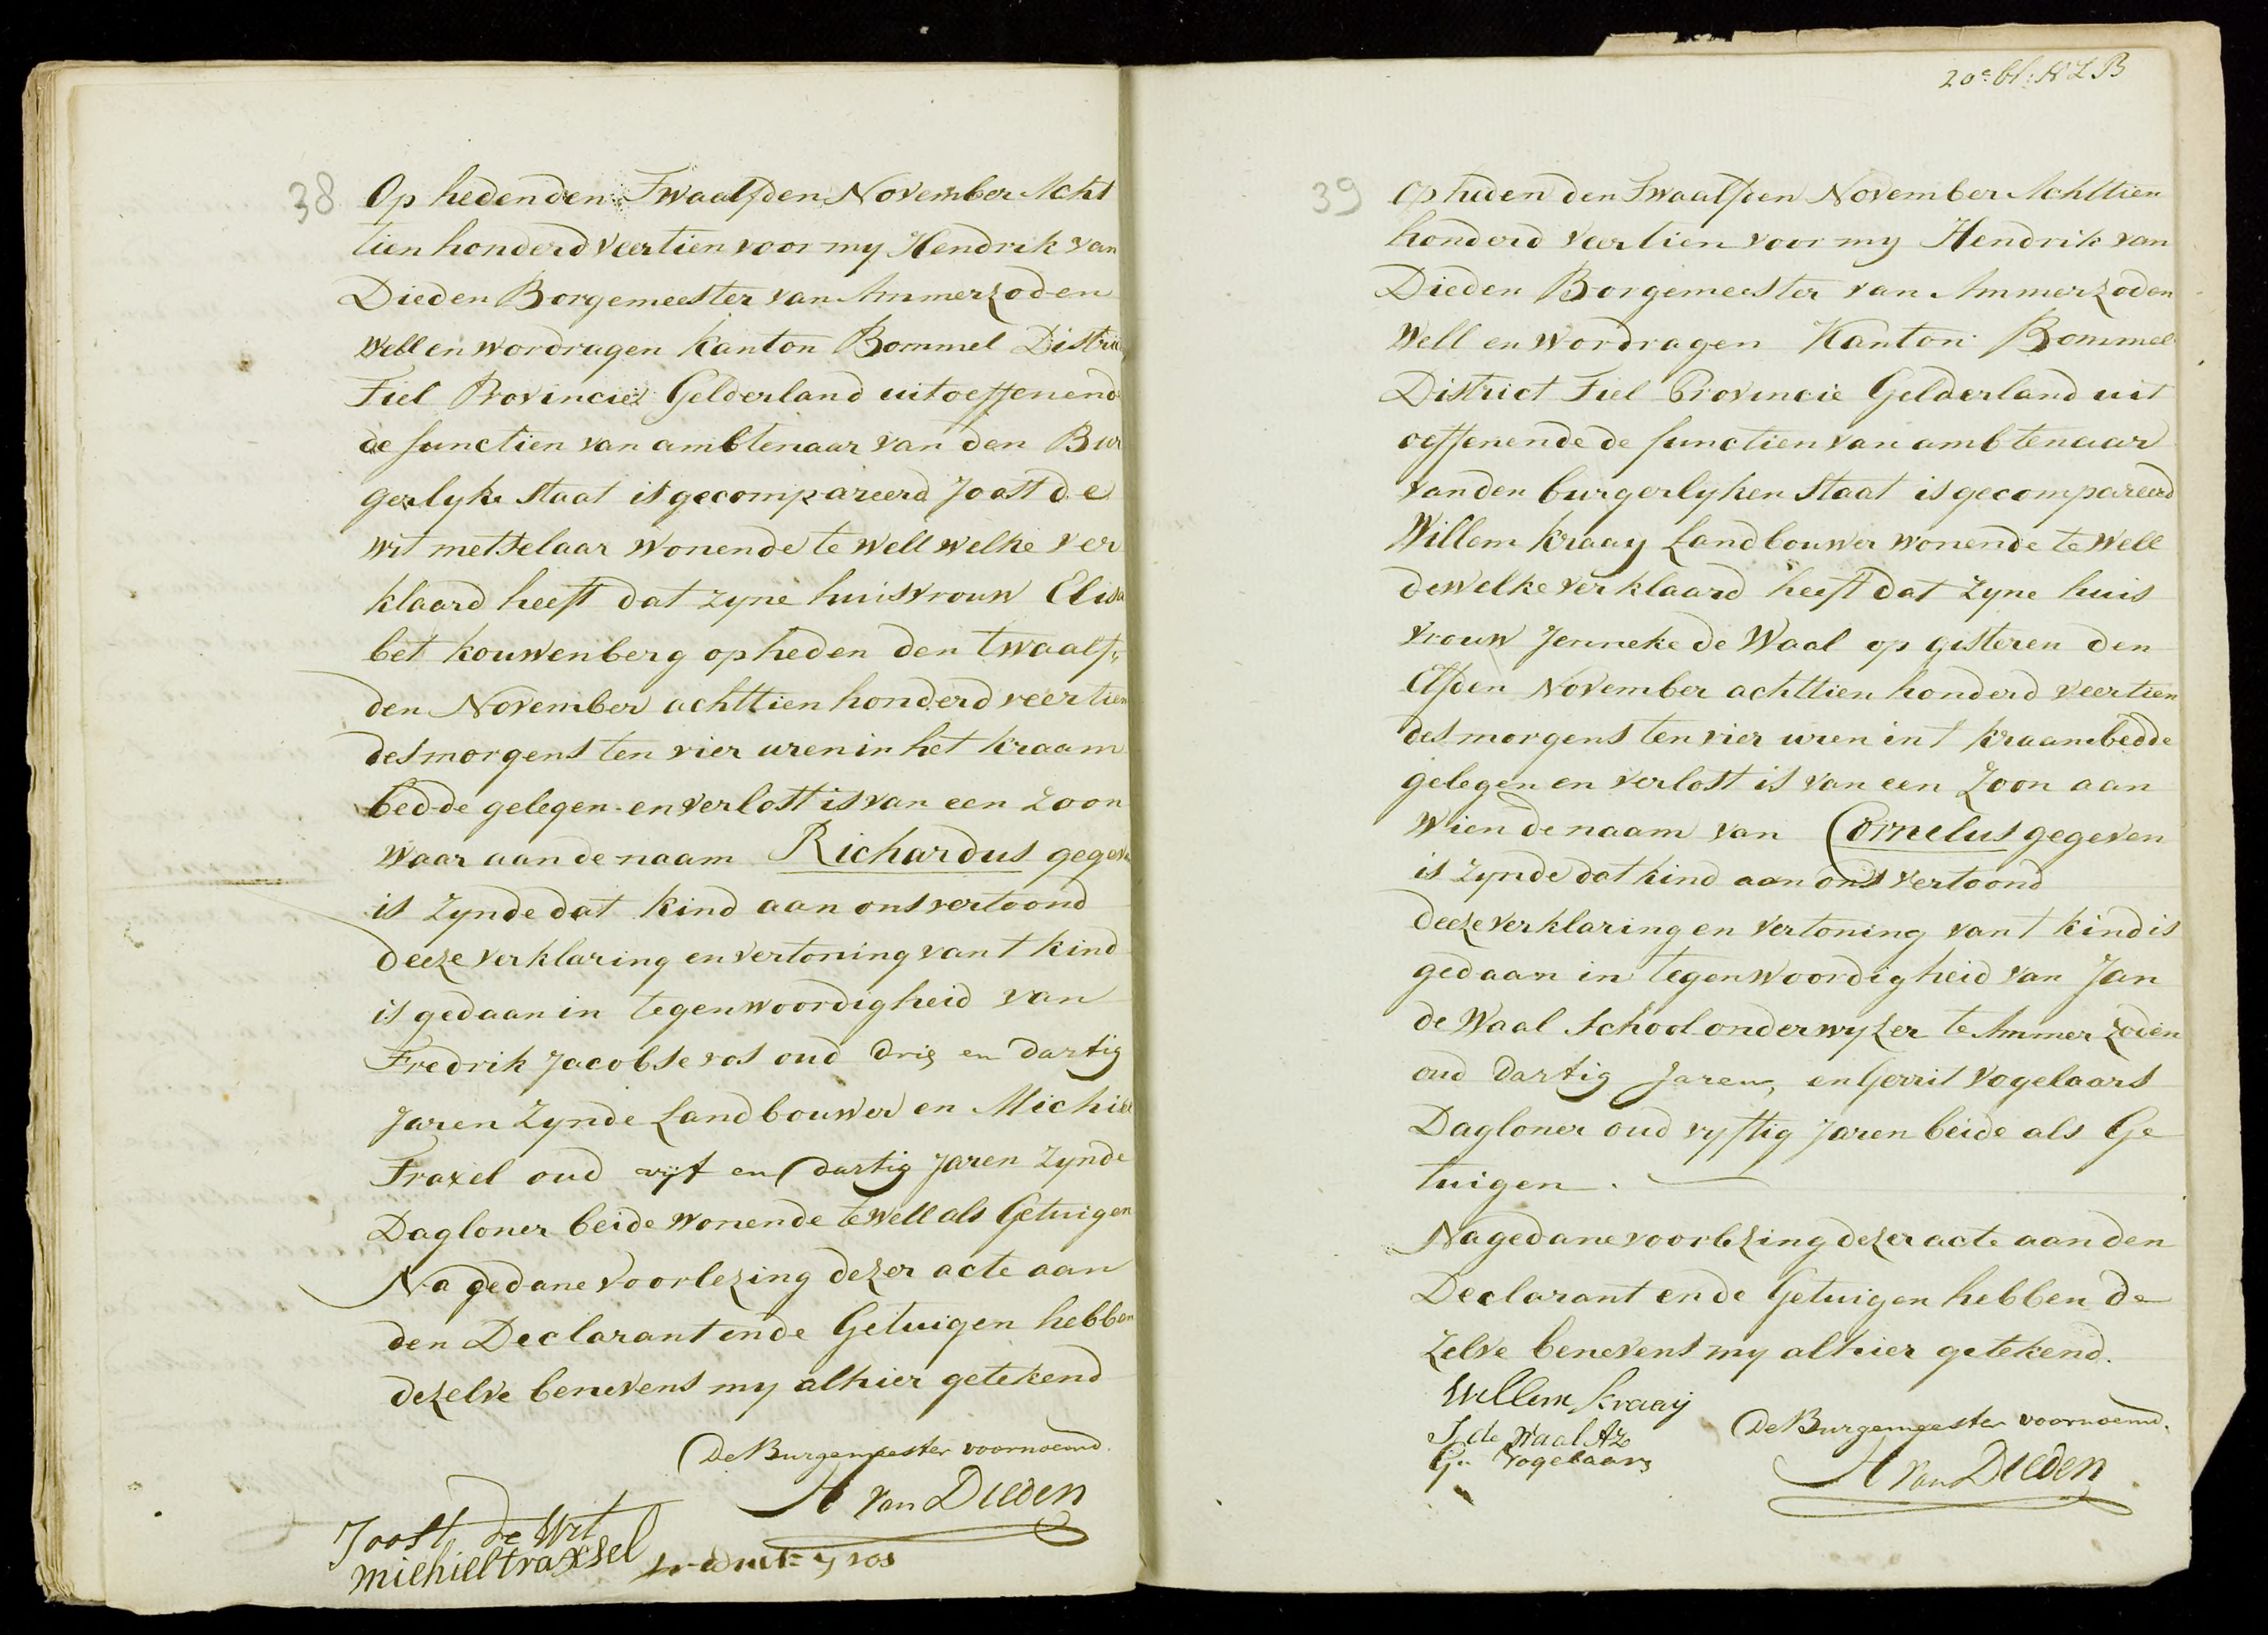 38 Op heden den Twaalfden November Acht
tien honderd veertien voor my Hendrik van
Dieden Borgemeester van Ammerzoden
Well en wordragen Kanton Bommel Distric
Tiel Provincie Gelderland uitoeffenend
de functien van ambtenaar van den Bur
gerlyke Staat is gecompareerd Joost de
wit metselaar wonende te well welke ver
klaard heeft dat zyne huisvrouw Elisa
bet kouwenberg op heden den twaalf„
den November achttien honderd veertien
des morgens ten vier uren in het kraam
bedde gelegen en verlost is van een zoon
waar aan de naam Richardus gegeve
is zynde dat kind aan ons vertoond
deeze verklaring en vertoning van t kind
is gedaan in tegenwoordigheid van
Fredrik Jacobse vos oud drie en dartig
Jaren zynde Landbouwer en Michiel
Traxel oud vijf en dartig Jaren zynde
Dagloner beide wonende te well als Getuigen
Na gedane voorlezing dezer acte aan
den Declarant ende Getuigen hebben
dezelve benevens my alhier getekend
De Burgemeester voornoemd.
H van Dieden
Joost de Wit
michieltraxsel vos
20e bl: HLB
39 Op heden den Twaalfden November Achttien
honderd veertien voor my Hendrik van
Dieden Borgemeester van Ammerzoden
Well en wordragen Kanton Bommel
District Tiel Provincie Gelderland uit
oeffenende de functien van ambtenaar
van den burgerlyken Staat is gecompareerd
Willem Kraay Landbouwer wonende te Well
dewelke verklaard heeft dat zyne huis
vrouw Jenneke de Waal op gisteren den
Elfden November achttien honderd veertien
des morgens ten vier uren in t kraambedde
gelegen en verlost is van een zoon aan
wien de naam van Cornelus gegeven
is zynde dat kind aan ons vertoond
deeze verklaring en vertoning van t kind is
gedaan in tegenwoordigheid van Jan
de Waal Schoolonderwyzer te Ammerzoden
oud dartig Jaren, en Gerrit Vogelaars
Dagloner oud vyftig Jaren beide als Ge
tuigen.
Na gedane voorlezing dezer acte aan den
Declarant en de Getuigen hebben de
zelve benevens my alhier getekend.
Willem Kraaij
J de Waal Az
G: Vogelaars
De Burgemeester voornoemd.
H van Dieden